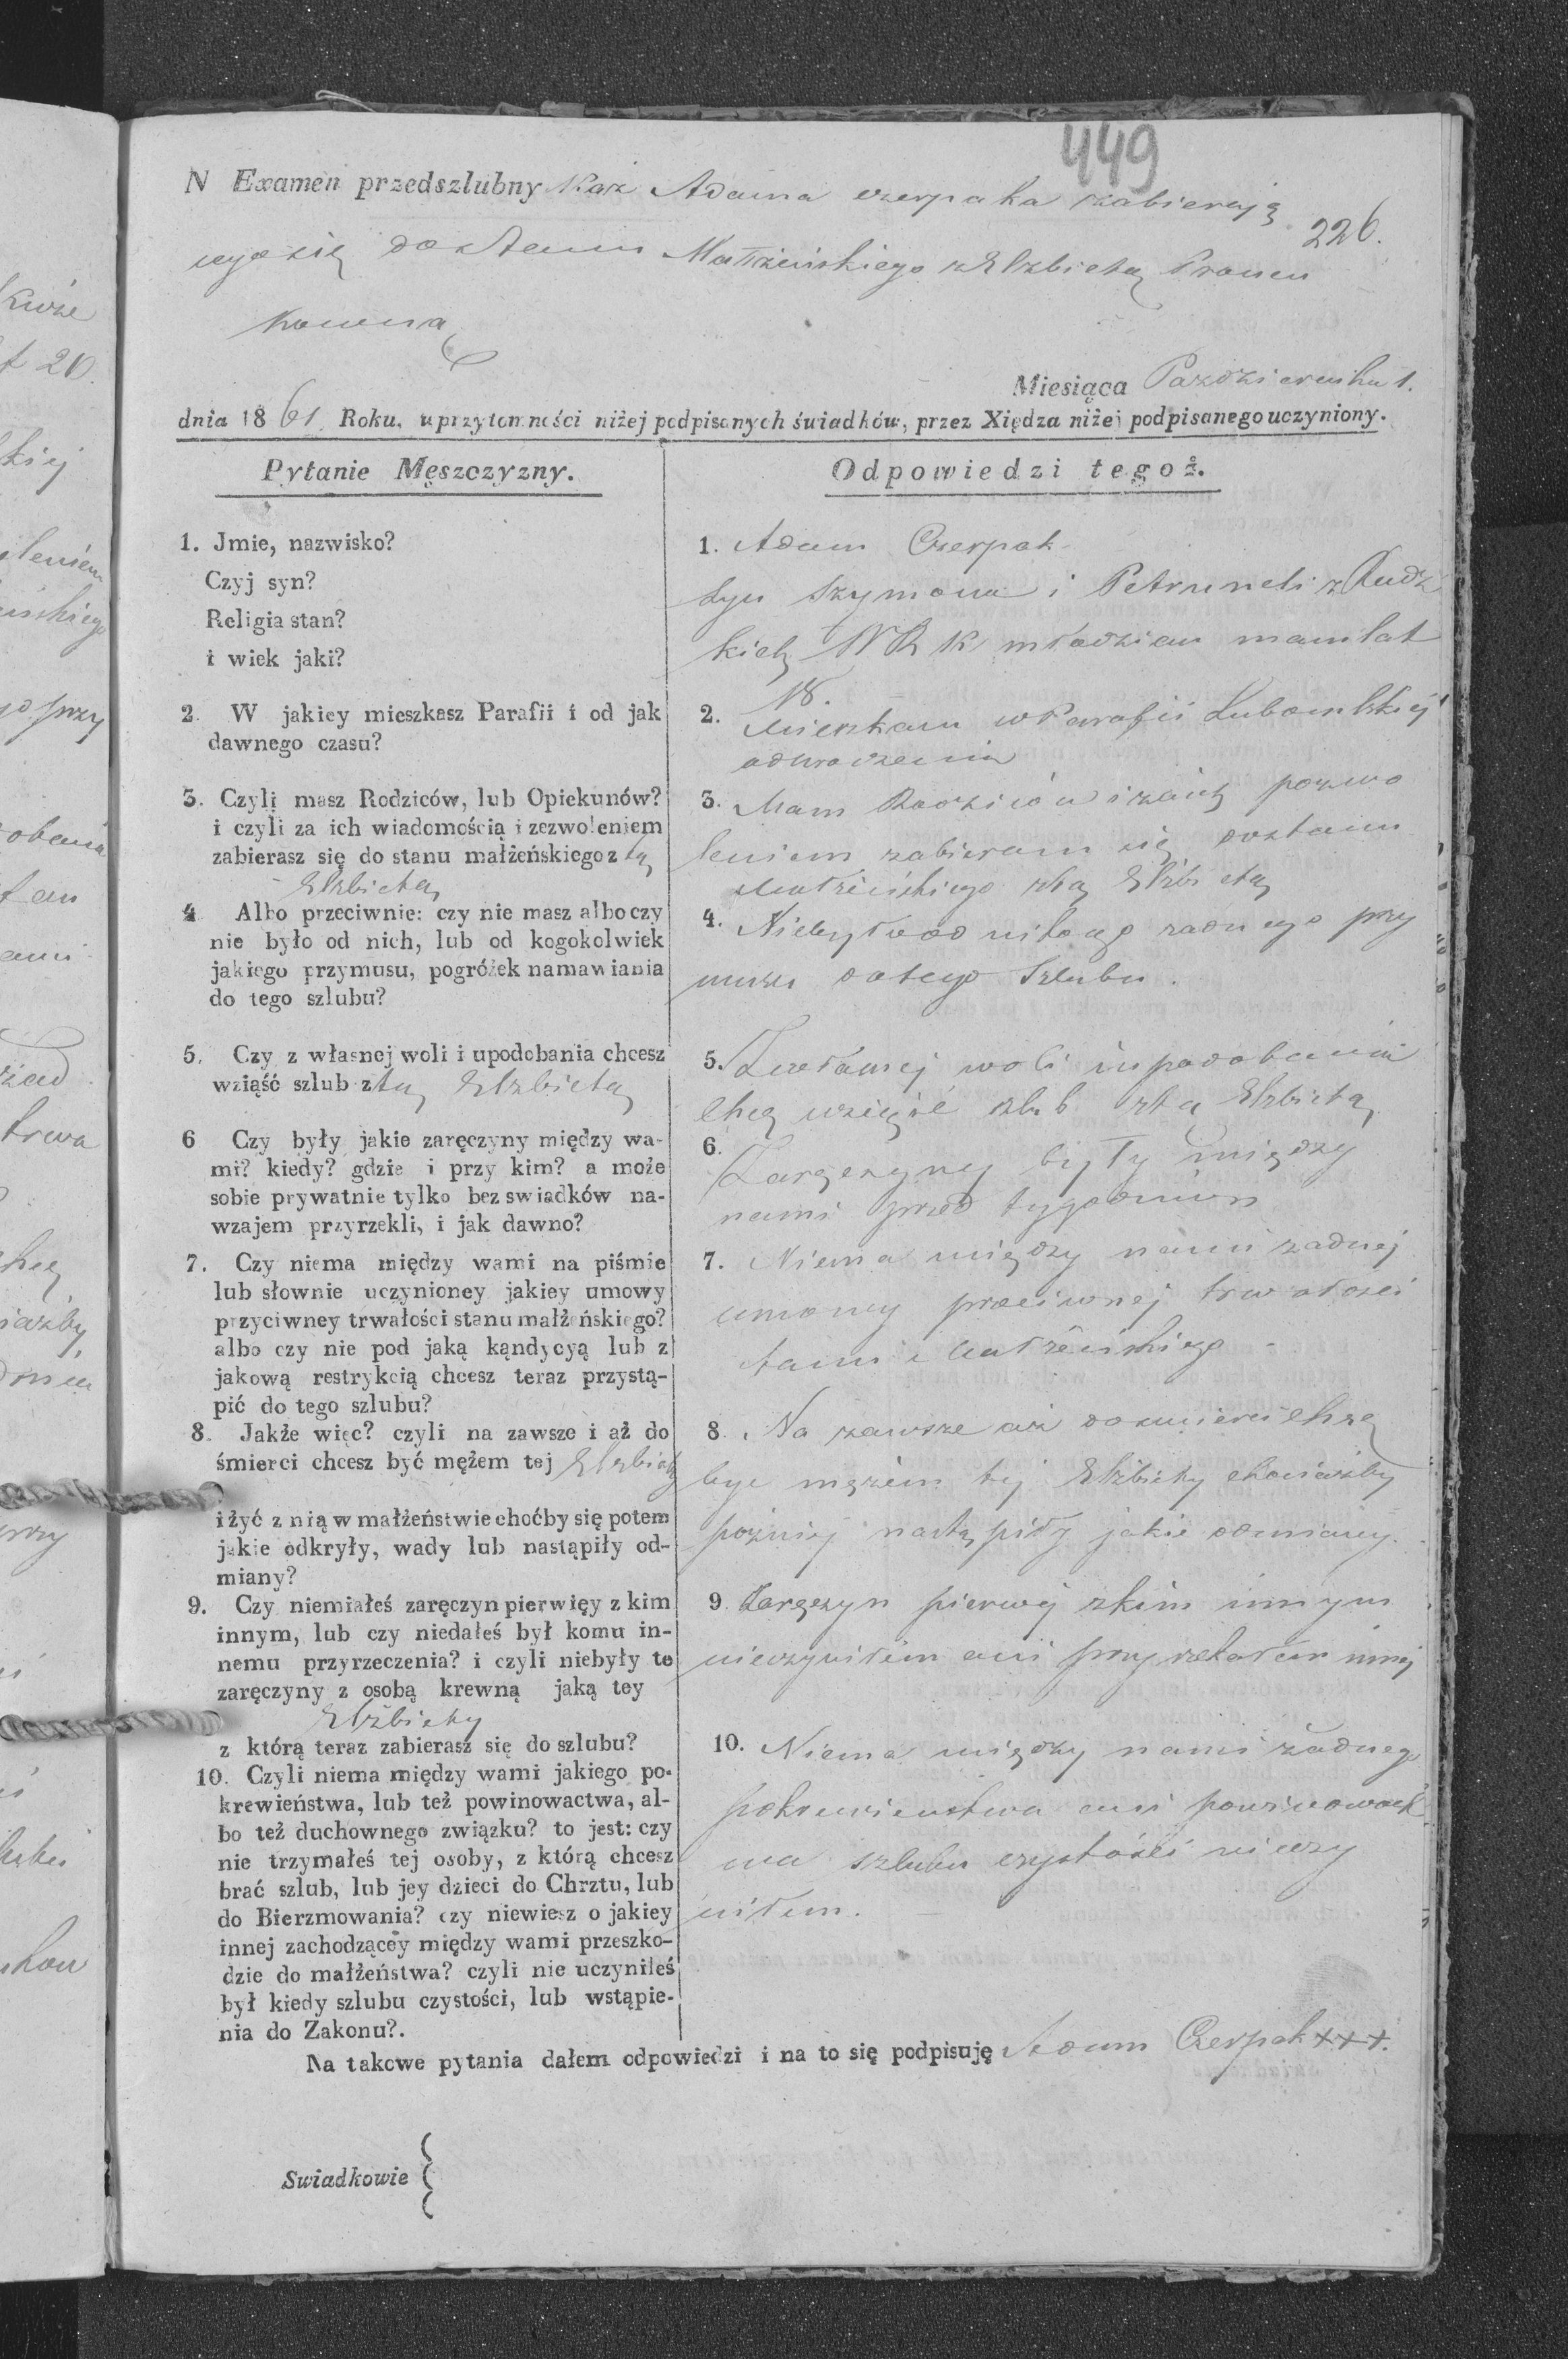 449
N Examen przedszlubny Adama Czerpaka zabierają
226.
cego się do stanu Małżeńskiego z Elżbietą
Miesiąca Pazdziernika 1.
dnia 1861 Roku, w przytomności niżej podpisanych świadków, przez Xiędza niżej podpisanego uczyniony.
Pytanie Męszczyzny.
1. Jmie, nazwisko?
Czyj syn?
Religia stan?
i wiek jaki?
2. W jakiey mieszkasz Parafii i od jak
dawnego czasu?
3. Czyli masz Rodziców, lub Opiekunów?
i czyli za ich wiadomością i zezwoleniem
zabierasz się do stanu małżeńskiego z tą
Elzbietą
4 Albo przeciwnie: czy nie masz albo czy
nie było od nich, lub od kogokolwiek
jakiego przymusu, pogróżek namawiania
do tego szlubu?
5. Czy z własnej woli i upodobania chcesz
wziąść szlub z tą Elzbietą
6 Czy były jakie zaręczyny między wa-
mi? kiedy? gdzie i przy kim? a może
sobie prywatnie tylko bez swiadków na-
wzajem przyrzekli, i jak dawno?
7. Czy niema między wami na piśmie
lub słownie uczynioney jakiey umowy
przyciwney trwałości stanu małżeńskiego?
albo czy nie pod jaką kąndycyą lub z
jakową restrykcią chcesz teraz przystą-
pić do tego szlubu?
8. Jakże więc? czyli na zawsze i aż do
śmierci chcesz być mężem tej Elzbiety
i żyć z nią w małżeństwie choćby się potem
jakie odkryły, wady lub nastąpiły od-
miany?
9. Czy niemiałeś zaręczyn pierwięy z kim
innym, lub czy niedałeś był komu in-
nemu przyrzeczenia? i czyli niebyły te
zaręczyny z osobą krewną jaką tey
Elżbiety
z którą teraz zabierasz się do szlubu?
10. Czyli niema między wami jakiego po-
krewieństwa, lub też powinowactwa, al-
bo też duchownego związku? to jest: czy
nie trzymałeś tej osoby, z którą chcesz
brać szlub, lub jey dzieci do Chrztu, lub
do Bierzmowania? czy niewiesz o jakiey
innej zachodzącey między wami przeszko-
dzie do małżeństwa? czyli nie uczyniłeś
był kiedy szlubu czystości, lub wstąpie-
nia do Zakonu?.
Odpowiedzi tegoż.
1. Adam Czerpak
Syn Szymona i Petruneli z Rudz
kich młodzian mam lat
18.
2. Mieszkam w Parafii Lubomlskiej
od urodzenia
3. Mam Rodziców i za ich pozwo
leniem zabieram się do stanu
Małżeńskiego z tą Elżbietą
4. Niebyło od nikogo zadnego przy
musu do tego Szlubu.
5. Z własnej woli i upodobania
chcę wziąść szlub z tą Elzbietą
6. Zaręczyny były między
nami przed tygodniem
7. Niema między nami zadnej
umowy przeciwnej trwałości
stanu Małżeńskiego
8. Na zawsze aż do smierci chcę
być mężem tej Elżbiety chociażby
pozniej nastąpiły jakie odmiany.
9 Zaręczyn pierwej z kim innym
nieczyniłem ani przyrzekałem innej
10. Niema między nami żadnego
pokrewienstwa ani powinowact
wa szlubu czystości nieczy
niłem.
Na takowe pytania dałem odpowiedzi i na to się podpisuję Adam Czerpak +++.
Swiadkowie